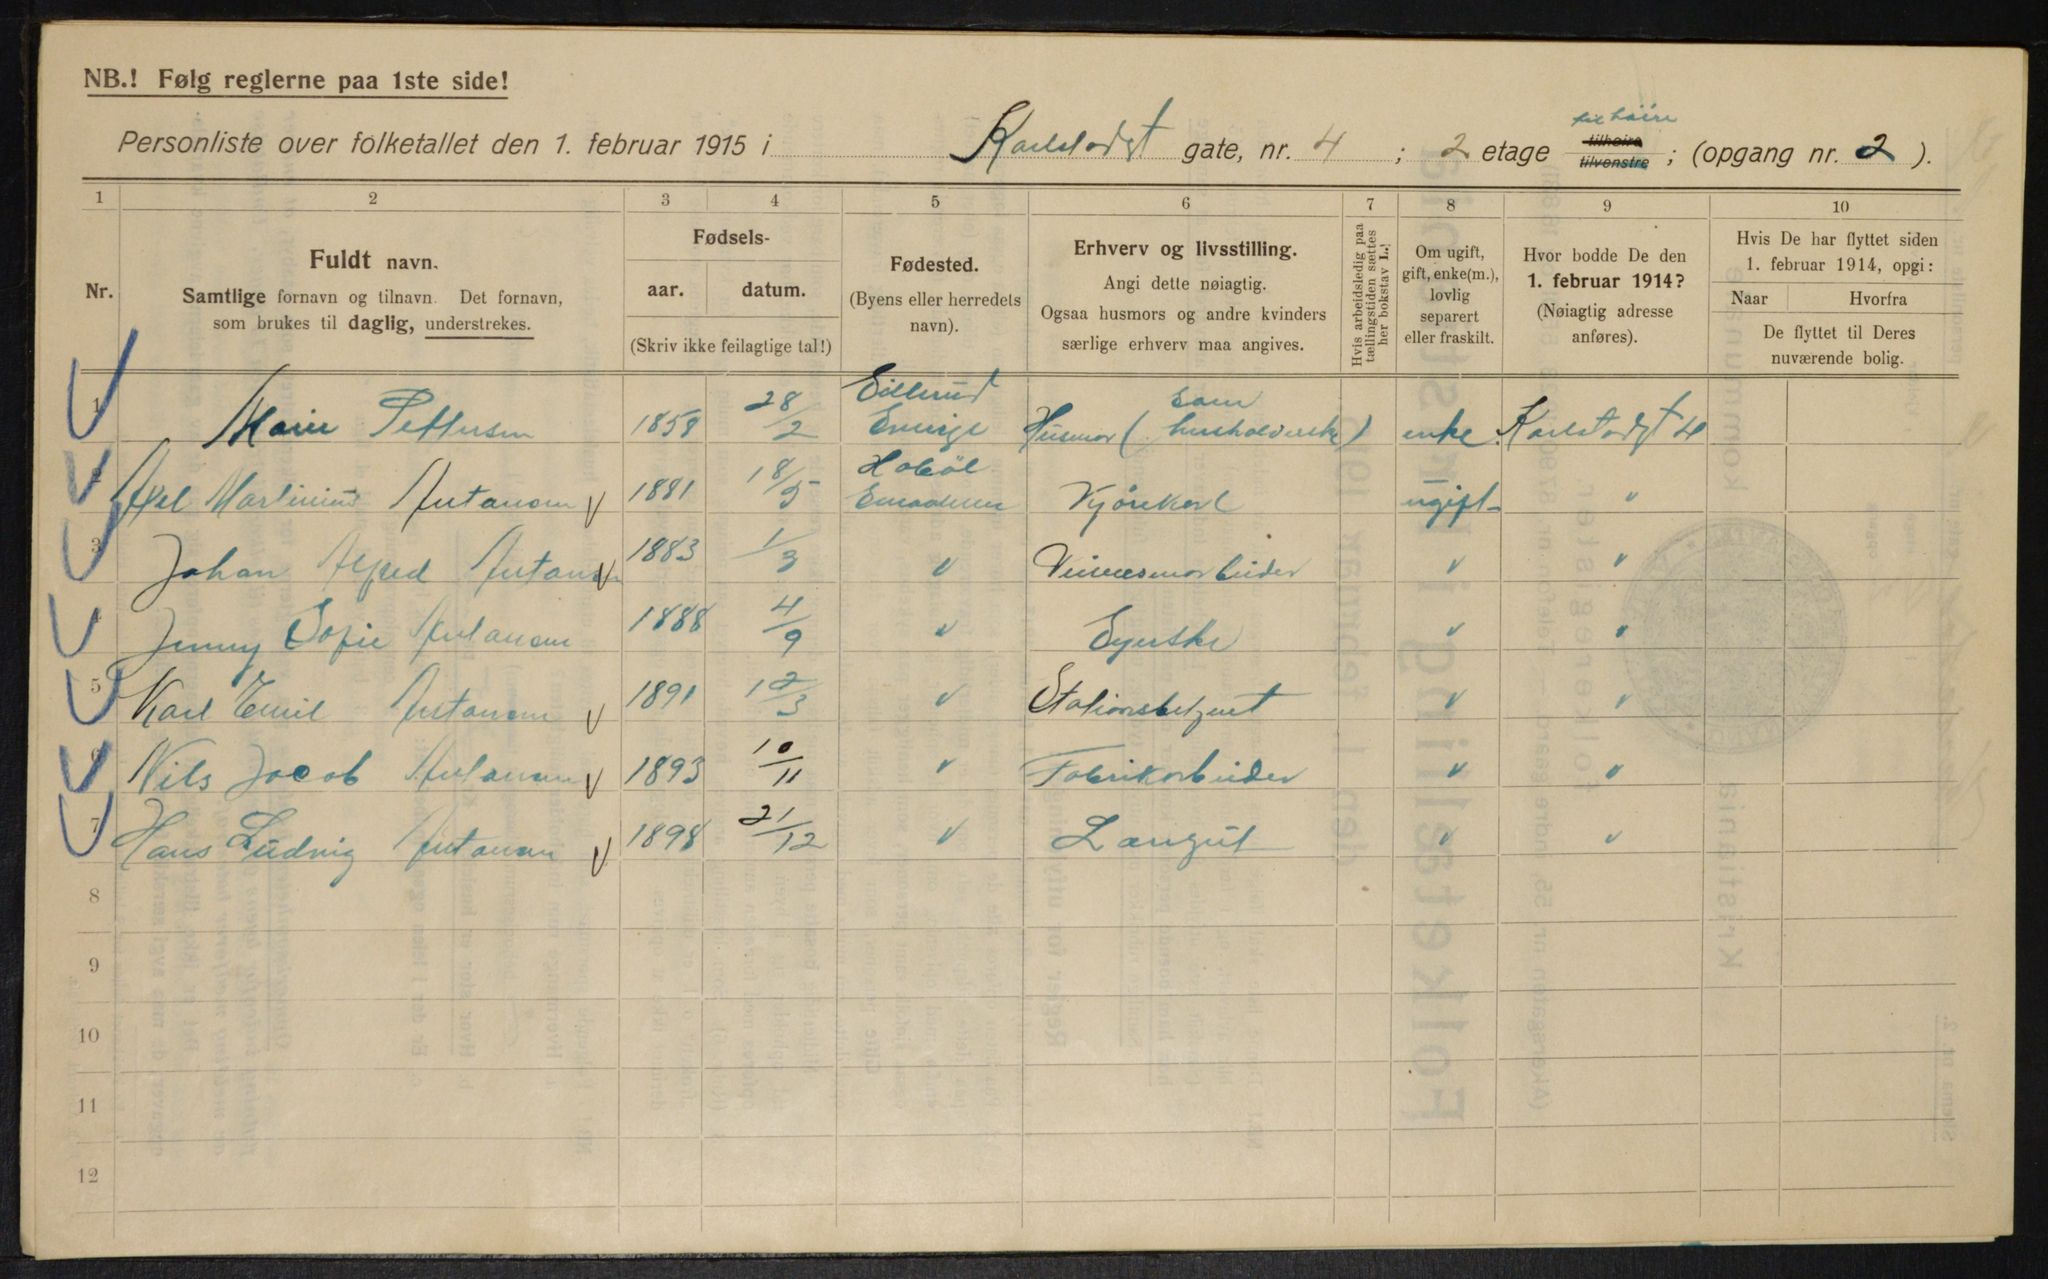 NB.! Følg reglerne paa 1ste side!
til høire
Personliste over folketallet den 1. februar 1915 i Karlstadgt gate, nr. 4 ; 2 etage tilhøire tilvenstre ; (opgang nr. 2 ).
1 2 3 4 5 6 7 8 9 10
Nr.
Fuldt navn.
Samtlige fornavn og tilnavn. Det fornavn,
som brukes til daglig, understrekes.
Fødsels-
aar. datum.
(Skriv ikke feilagtige tal!)
Fødested.
(Byens eller herredets
navn).
Erhverv og livsstilling.
Angi dette nøiagtig.
Ogsaa husmors og andre kvinders
særlige erhverv maa angives.
Hvis arbeidsledig paa
tællingstiden sættes
her bokstav L.!
Om ugift,
gift, enke(m.),
lovlig
separert
eller fraskilt.
Hvor bodde De den
1. februar 1914?
(Nøiagtig adresse
anføres).
Hvis De har flyttet siden
1. februar 1914, opgi:
Naar Hvorfra
De flyttet til Deres
nuværende bolig.
1 Marie Pettersen 1858 28/2 Husmor ( husholderske ) enke Karlstadgt 4
2 Axel Martinius Antonsen 1881 18/5 Hobøl Smaalene Kjørekarl ugift "
3 Johan Alfred Antonsen 1883 1/3 " " "
4 Jenny Sofie Antonsen 1888 4/9 " Syerske " "
5 Karl Emil Antonsen 1891 12/3 " Stationsbetjent " "
6 Nils Jacob Antonsen 1893 10/11 " Fabrikarbeider " "
7 Hans Ludvig Antonsen 1898 21/12 " " "
8
9
10
11
12